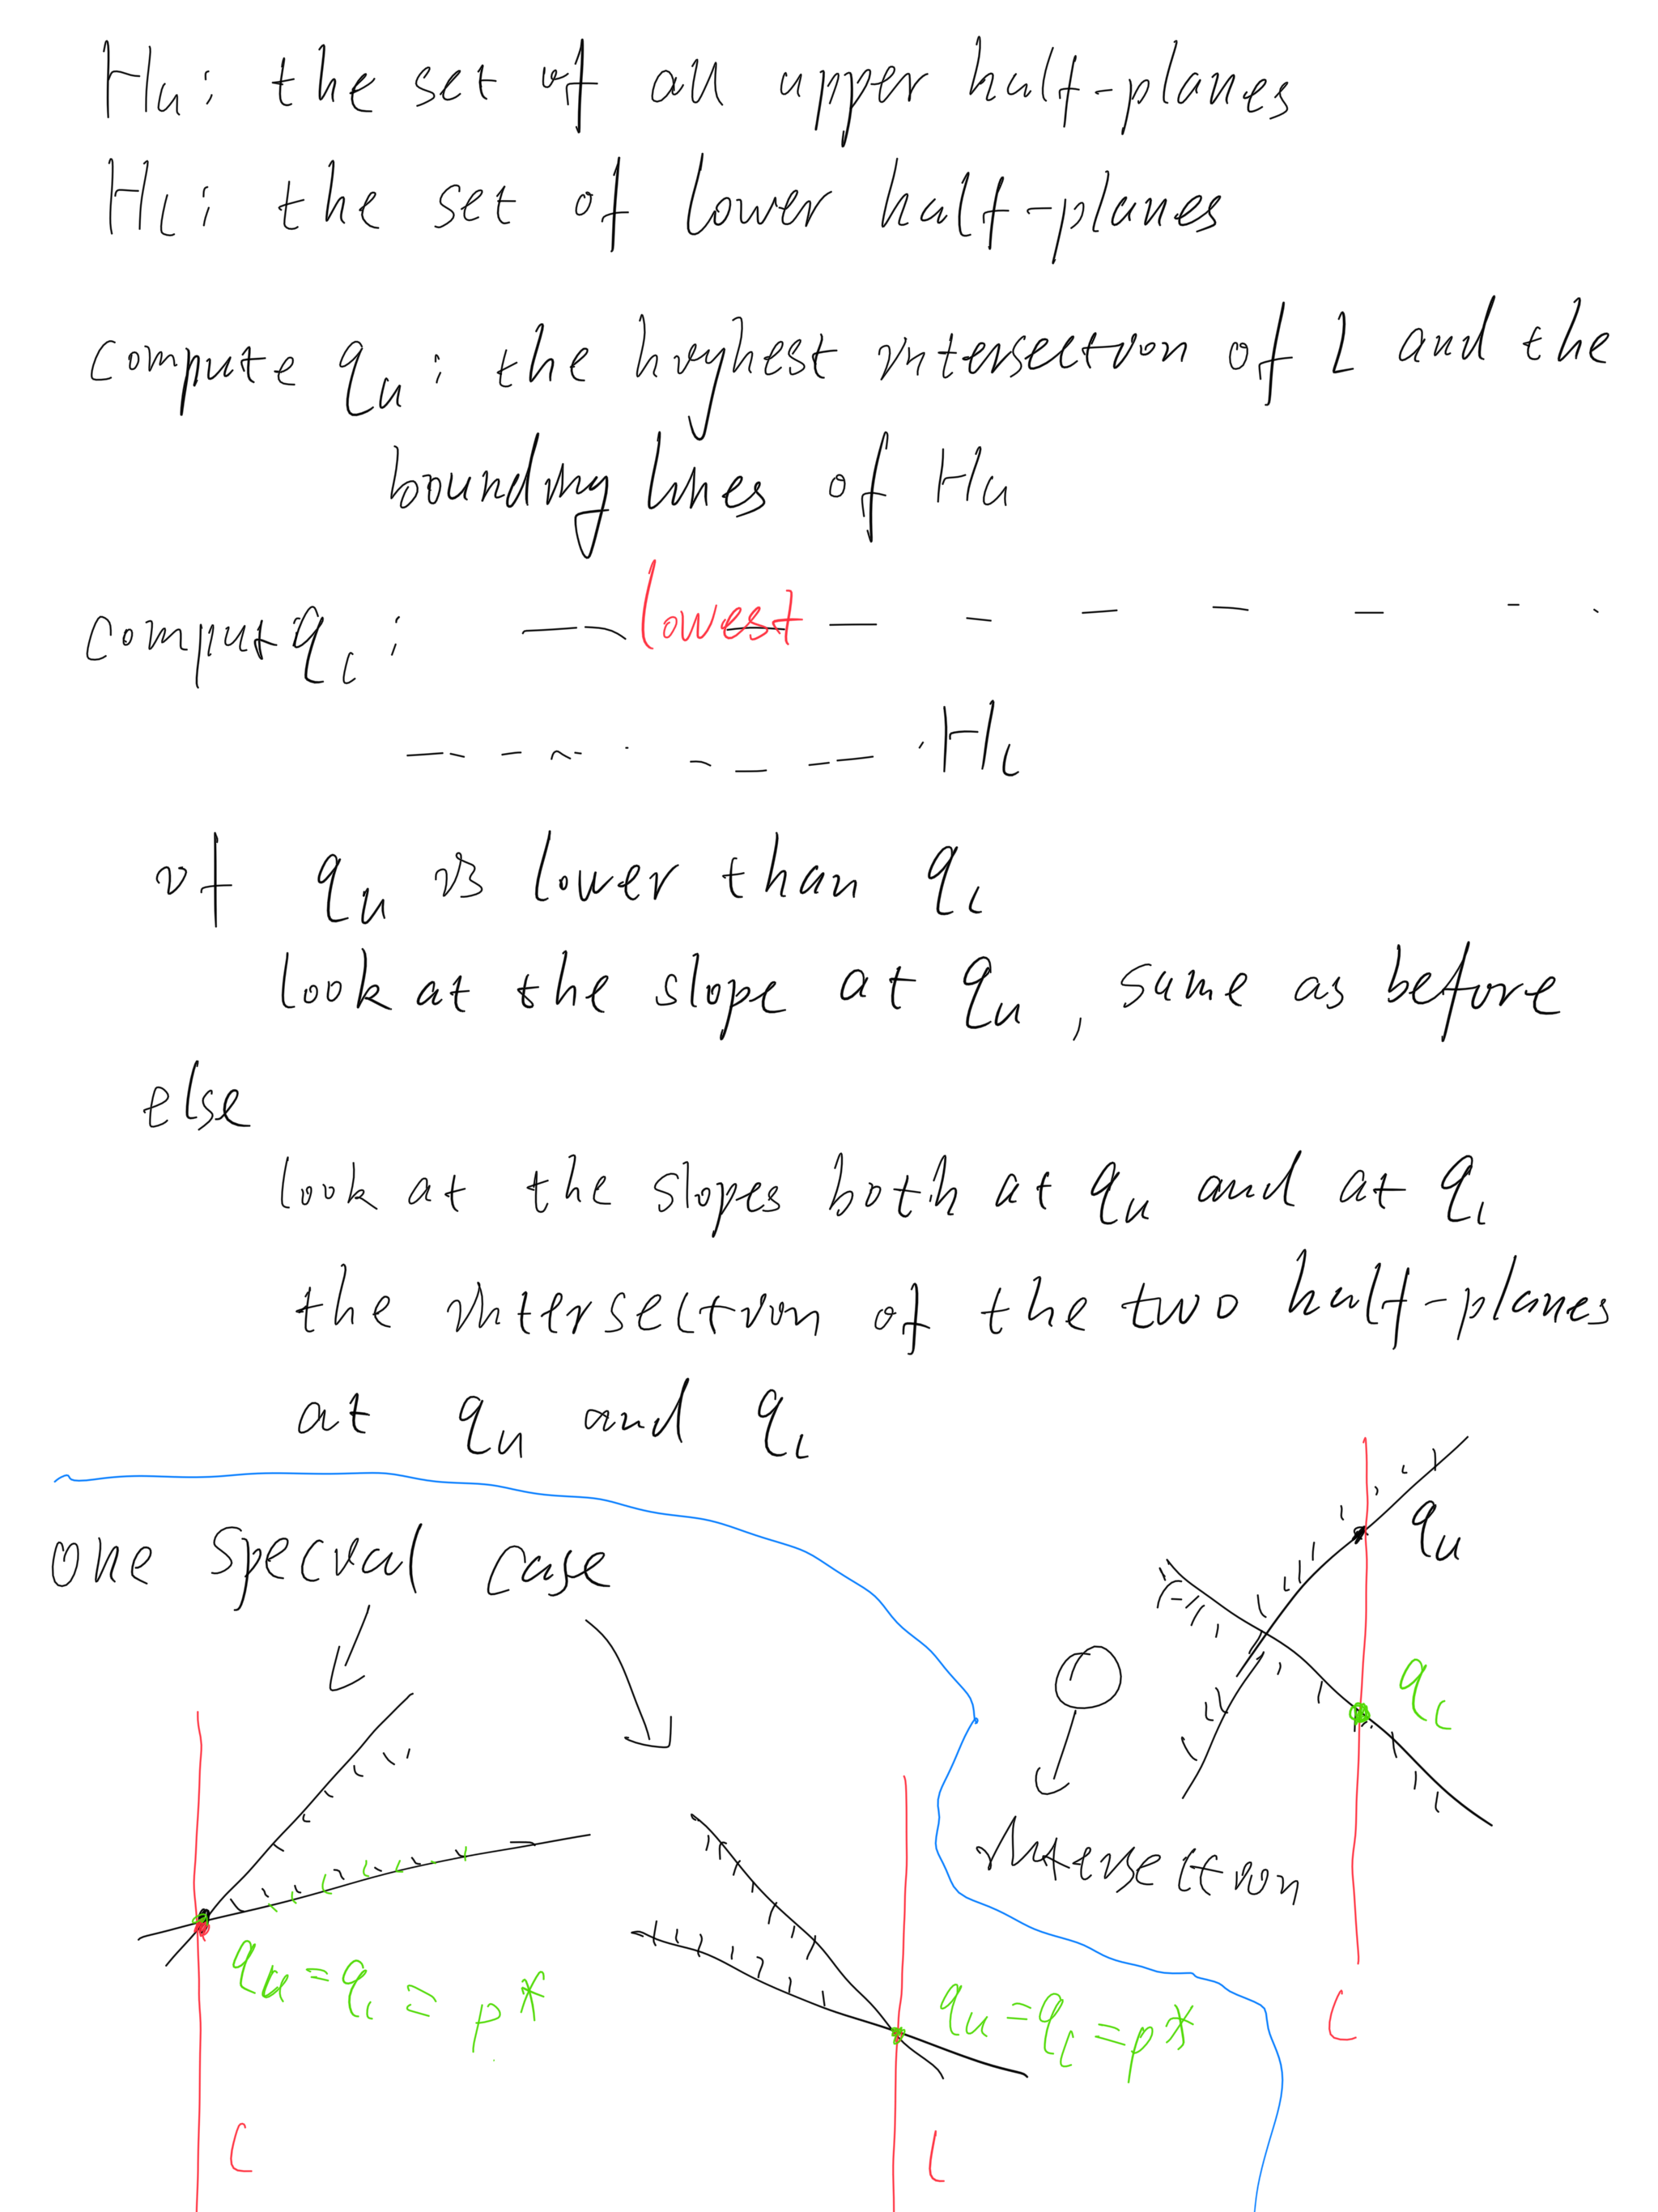 Hu: the set of all upper half-planes
HL: the set of lower half-planes
compute qu: the highest intersection of L and the
bounding lines of Hu
compute qL: lowest
HL
if qu is lower than qL
look at the slope at qu, same as before
else
look at the slopes both at qu and at qL
the intersection of the two half-planes
at qu and qL
one special case
qu
qL
intersection
qu = qL = p*
qu = qL = p*
L
L
L